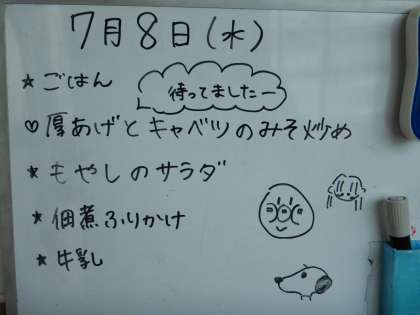 7月8日(水)
★ごはん
待ってましたー
♡厚あげとキャベツのみそ炒め
★もやしのサラダ
★佃煮ふりかけ
★牛乳